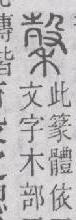 此篆體依
文字木部
傳皆